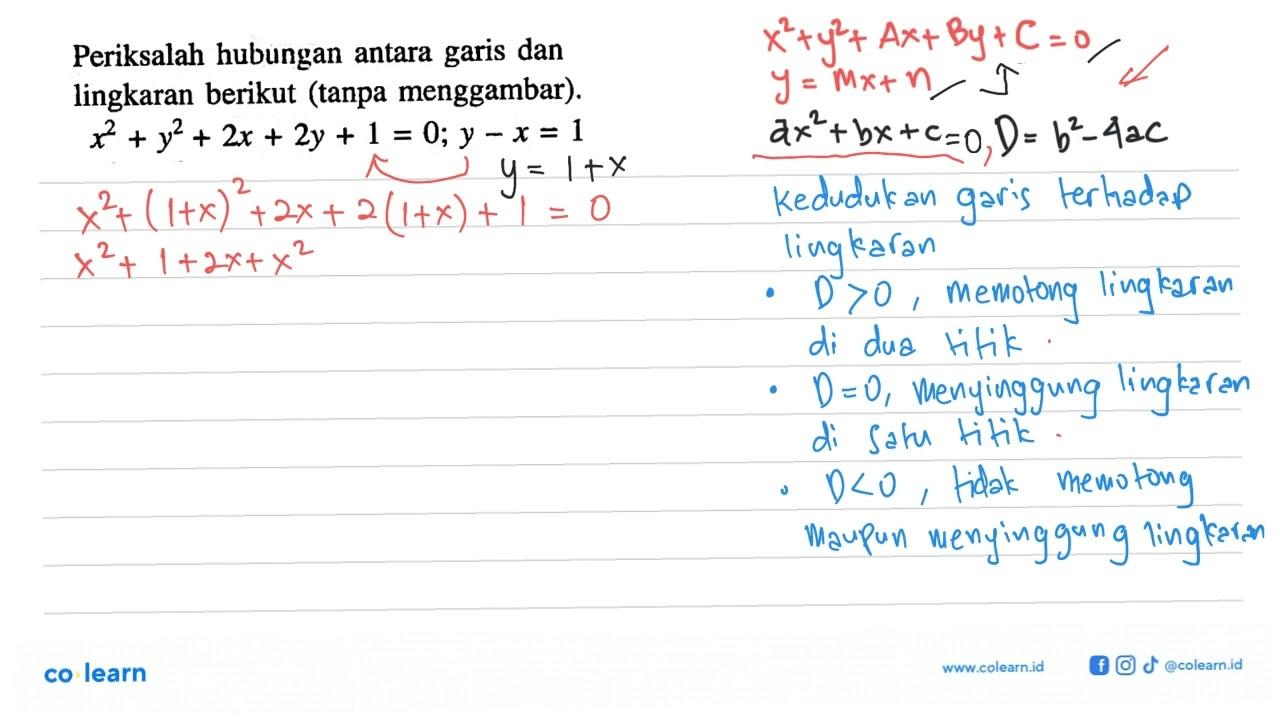 Periksalah hubungan antara garis dan
lingkaran berikut (tanpa menggambar).
x² + y² + 2x + 2y + 1 = 0; y − x = 1
y = 1+x
x²+ (1+x)² +2x + 2(1+x) + 1 = 0
x² + 1+2x+x²
x²+y²+ Ax+By+C=0
y = mx+n
ax²+bx+c=0, D= b²-4ac
Kedudukan garis terhadap
lingkaran
• D>0, memotong lingkaran
di dua titik.
• D=0, menyinggung lingkaran
di satu titik.
• D<0, tidak memotong
maupun menyinggung lingkaran
co learn
www.colearn.id
@colearn.id